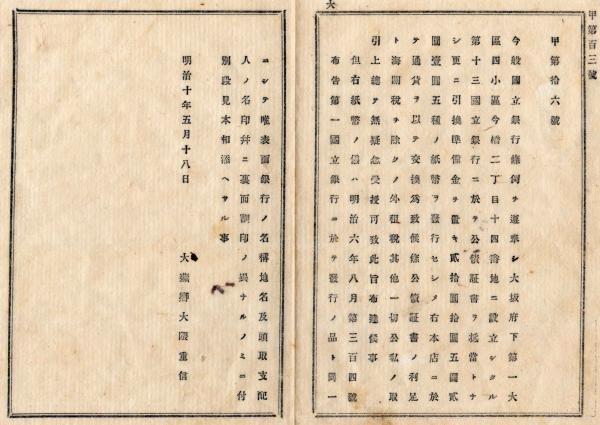 甲第百三號
甲第拾六號
今般國立銀行條例ヲ遵奉シ大坂府下第一大
區四小區今橋二丁目十四番地ニ設立シタル
第十三國立銀行ニ於テ公債証書ヲ抵當トナ
シ更ニ引換準備金ヲ置キ貳拾圓拾圓五圓貳
圓壹圓五種ノ紙幣ヲ發行セシメ右本店ニ於
テ通貨ヲ以テ交換爲致候條公債証書ノ利足
ト海關税ヲ除クノ外租税其他一切公私ノ取
引上總テ無疑念受授可致此旨布達候事
但右紙幣ノ儀ハ明治六年八月第三百四號
布告第一國立銀行ニ於テ發行ノ品ト同一
六
ニシテ唯表面銀行ノ名稱地名及頭取支配
人ノ名印幷ニ裏面割印ノ異ナルノミニ付
別段見本相添ヘサル事
明治十年五月十八日
大藏卿大隈重信